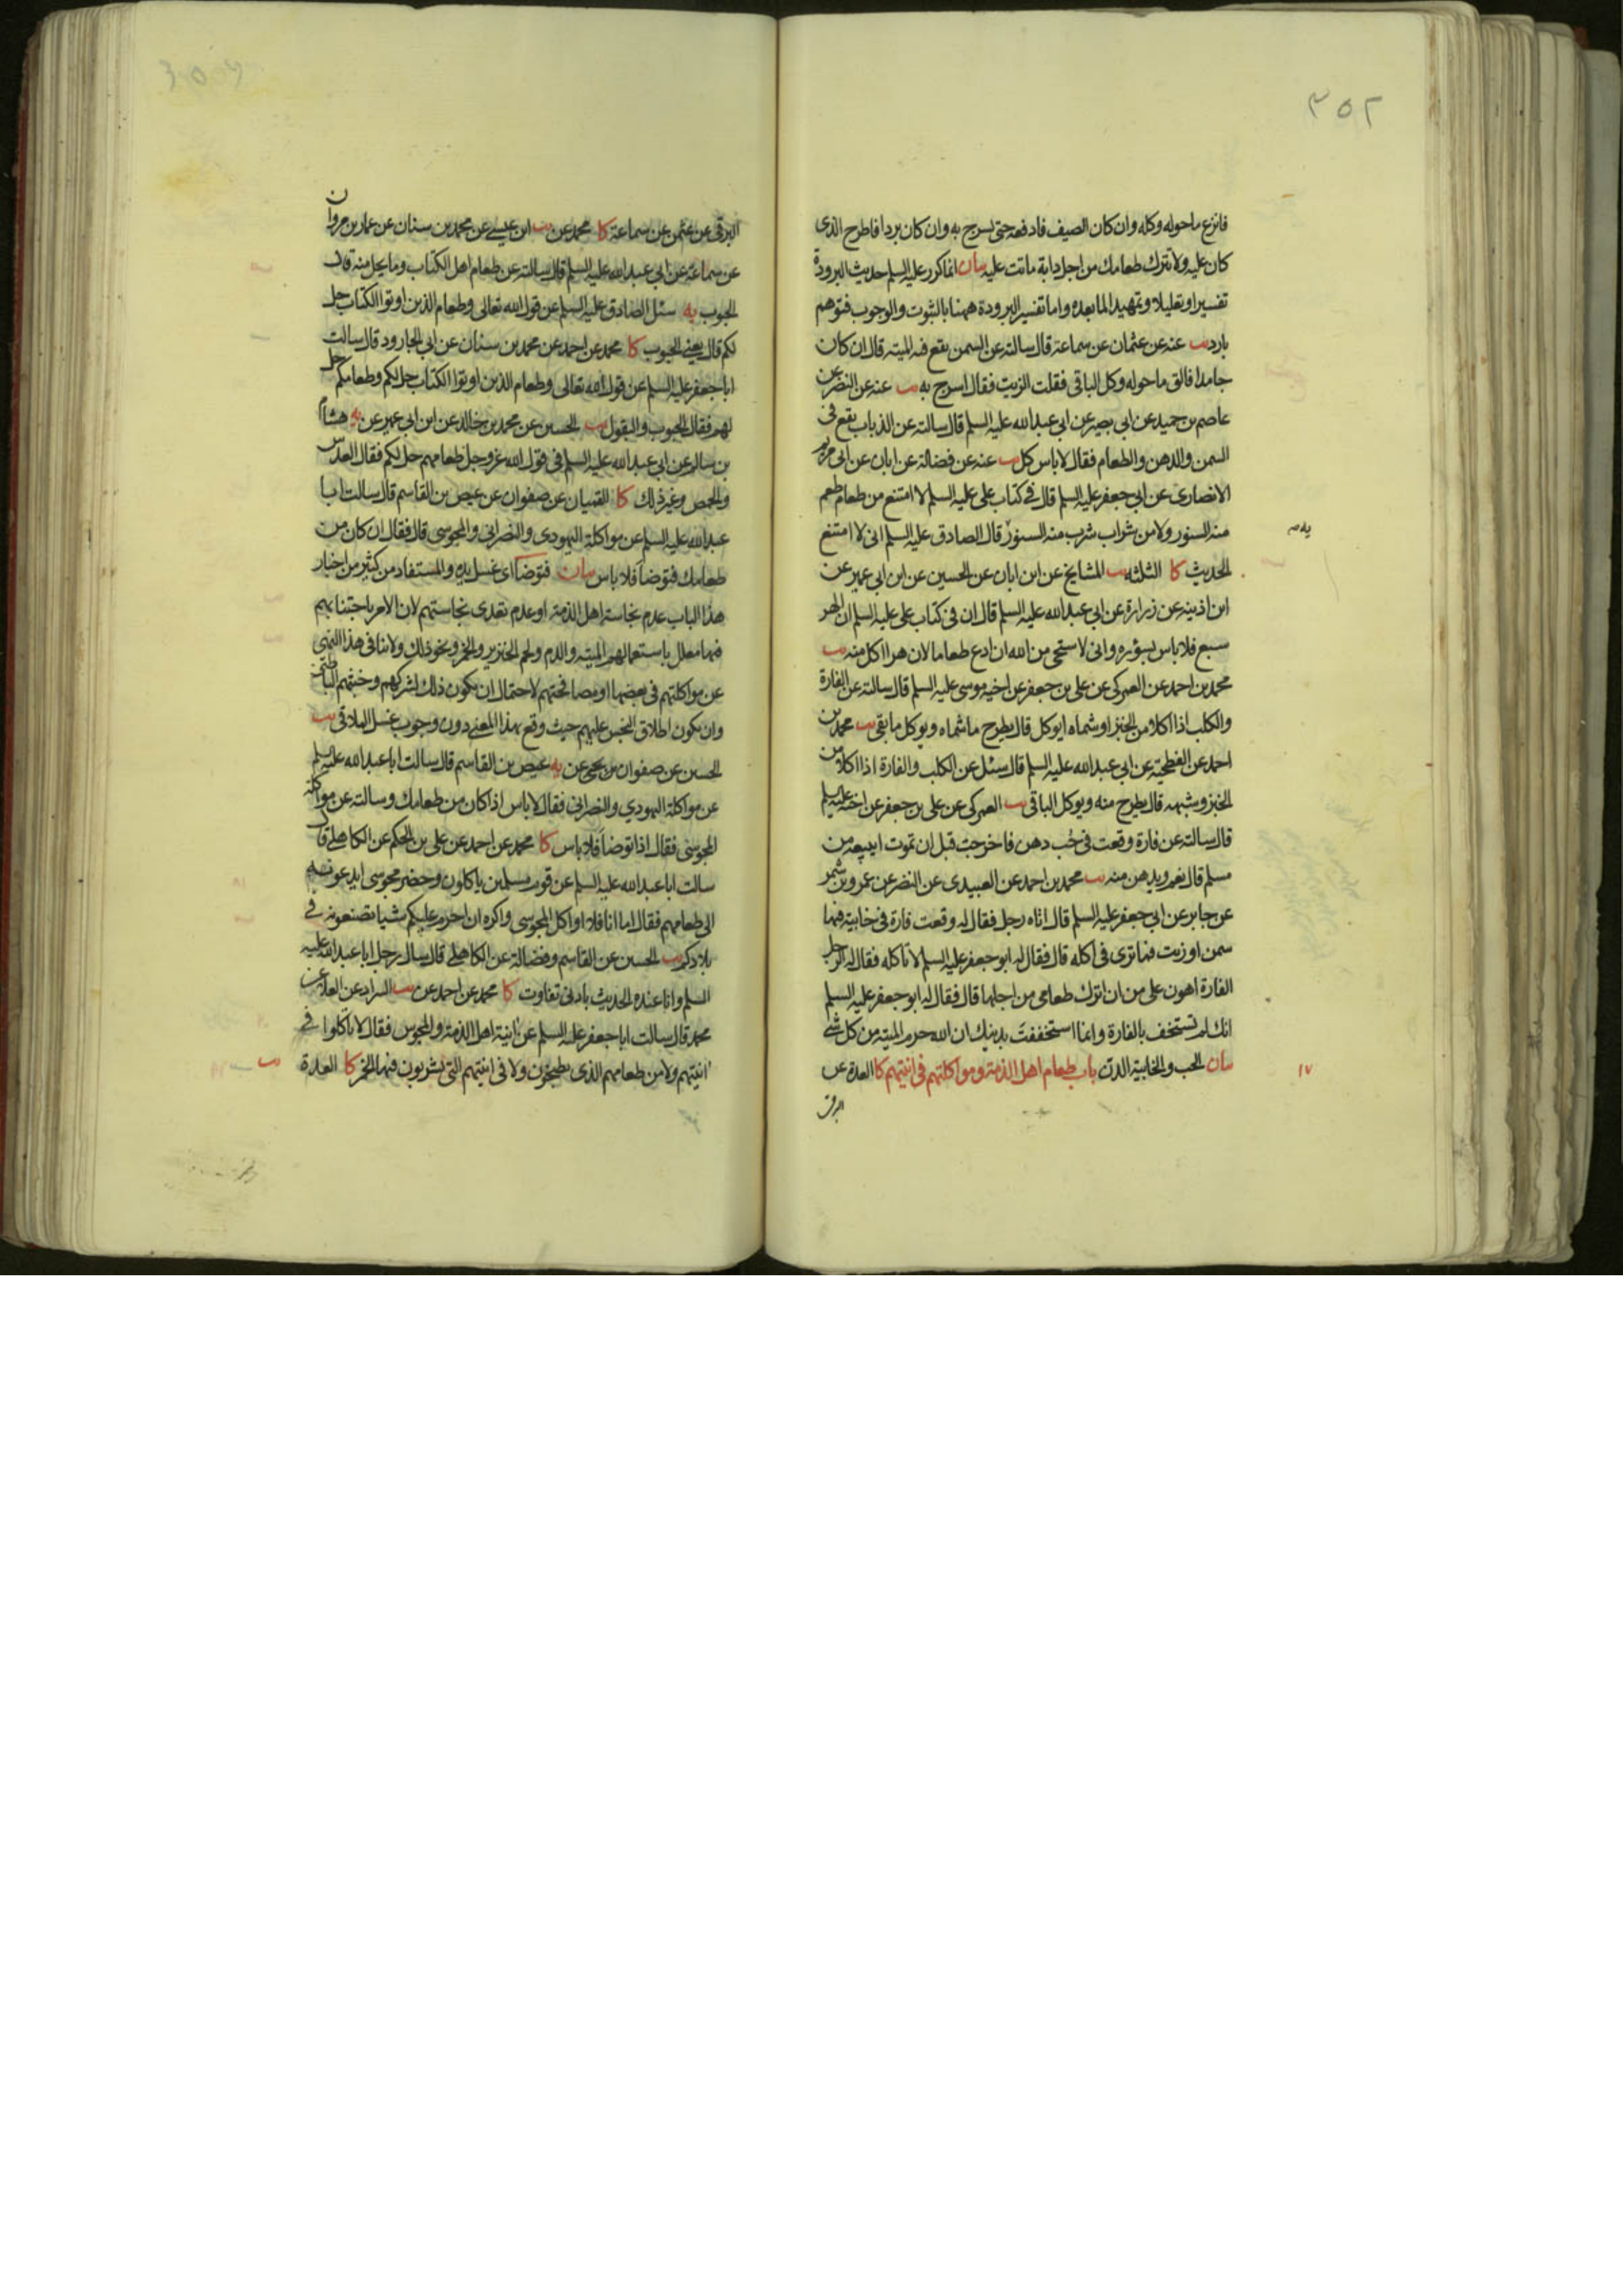 ٣٥٢
فانزع ماحوله وكله وان كان الصيف فادفعه حتى تسرج به وان كان بردا فاطرح الذى
كان عليه ولا تترك طعامك من اجل دابة ماتت عليه بيان انما كرر عليه السلم حديث البرودة
تفسيرا وتعليلا وتمهيدا لما بعده واما تفسير البرودة ههنا بالثبوت والوجوب فتوهم
بارد يب عنه عن عثمان عن سماعة قال سالته عن السمن يقع فيه الميته قال ان كان
جامدا فالق ماحوله وكل الباقى فقلت الزيت فقال اسرج به يب عنه عن النضر عن
عاصم بن حميد عن ابى بصير عن ابى عبدالله عليه السلم قال سالته عن الذباب يقع فى
السمن والدهن والطعام فقال لا باس كل يب عنه عن فضالة عن ابان عن ابى مريم
الانصارى عن ابى جعفر عليه السلم قال فى كتاب على عليه السلم لا امتنع من طعام طعم
منه السنور ولا من شراب شرب منه السنور قال الصادق عليه السلم انى لا امتنع
الحديث كا الثلثة يب المشايخ عن ابن ابان عن الحسين عن ابن ابى عمير عن
ابن اذينه عن زرارة عن ابى عبدالله عليه السلم قال ان فى كتاب على عليه السلم ان الهر
سبع فلا باس بسؤره وانى لاستحى من الله ان ادع طعاما لان هرا اكل منه يب
محمد بن احمد عن العمركى عن على بن جعفر عن اخيه موسى عليه السلم قال سالته عن الفارة
والكلب اذا اكلا من الخبز او شماه ايوكل قال يطرح ما شماه ويوكل ما بقى يب محمد بن
احمد عن الفطحية عن ابى عبدالله عليه السلم قال سئل عن الكلب والفارة اذا اكلا من
الخبز وشبهه قال يطرح منه ويوكل الباقى يب العمركى عن على بن جعفر عن اخيه عليه السلم
قال سالته عن فارة وقعت فى حُب دهن فاخرجت قبل ان تموت ايبيعه من
مسلم قال نعم ويدهن منه يب محمد بن احمد عن العبيدى عن النضر عن عمرو بن شمر
عن جابر عن ابى جعفر عليه السلم قال اتاه رجل فقال له وقعت فارة فى خابية فيها
سمن او زيت فما ترى فى اكله قال فقال له ابو جعفر عليه السلم لا تاكله فقال له الرجل
الفارة اهون على من ان اترك طعامى من اجلها قال فقال له ابو جعفر عليه السلم
انك لم تستخف بالفارة وانما استخففتَ بدينك ان الله حرم الميته من كل شى
بيان الحب والخابية الدن باب طعام اهل الذمة ومواكلتهم فى انيتهم كا العدة عن
البرقى
١٧
البرقى عن عثمن عن سماعة كا محمد عن يب ابن عيسى عن محمد بن سنان عن عمار بن مروان
عن سماعة عن ابى عبدالله عليه السلم قال سالته عن طعام اهل الكتاب وما يحل منه قال
الحبوب يه سئل الصادق عليه السلم عن قول الله تعالى وطعام الذين اوتوا الكتاب حل
لكم قال يعنى الحبوب كا محمد عن احمد عن محمد بن سنان عن ابى الجارود قال سالت
ابا جعفر عليه السلم عن قول الله تعالى وطعام الذين اوتوا الكتاب حل لكم وطعامكم حل
لهم فقال الحبوب والبقول يب الحسين عن محمد بن خالد عن ابن ابى عمير عن يه هشام
بن سالم عن ابى عبدالله عليه السلم فى قول الله عز وجل طعامهم حل لكم فقال العدس
والحمص وغير ذلك كا القميان عن صفوان عن عيص بن القاسم قال سالت ابا
عبدالله عليه السلم عن مواكلة اليهودى والنصرانى والمجوسى قال فقال ان كان من
طعامك فتوضأ فلا باس بيان فتوضأ اى غسل يده والمستفاد من كثير من اخبار
هذا الباب عدم نجاسة اهل الذمة او عدم تعدى نجاستهم لان الامر باجتنابهم
فيها معلل باستعمالهم الميته والدم ولحم الخنزير والخمر ونحو ذلك ولا ينافى هذا النهى
عن مواكلتهم فى بعضها او مصافحتهم لاحتمال ان يكون ذلك لشركهم وخبثهم الباطنى
وان يكون اطلاق النجس عليهم حيث وقع بهذا المعنى دون وجوب غسل الملاقى يب
الحسين عن صفوان بن يحيى عن يه عيص بن القاسم قال سالت ابا عبدالله عليه السلم
عن مواكلة اليهودي والنصرانى فقال لا باس اذا كان من طعامك وسالته عن مواكلة
المجوسى فقال اذا توضأ فلا باس كا محمد عن احمد عن على بن الحكم عن الكاهلى قال
سالت ابا عبدالله عليه السلم عن قوم مسلمين ياكلون وحضر مجوسى ايدعونه
الى طعامهم فقال اما انا فلا اواكل المجوسى واكره ان احرم عليكم شيا تصنعونه فى
بلادكم يب الحسين عن القاسم وفضالة عن الكاهلى قال سال رجل ابا عبدالله عليه
السلم وانا عنده الحديث بادنى تفاوت كا محمد عن احمد عن يب السراد عن العلا عن
محمد قال سالت ابا جعفر عليه السلم عن انية اهل الذمة والمجوس فقال لا تاكلوا فى
انيتهم ولا من طعامهم الذى يطبخون ولا فى انيتهم التى يشربون فيها الخمر كا العدة